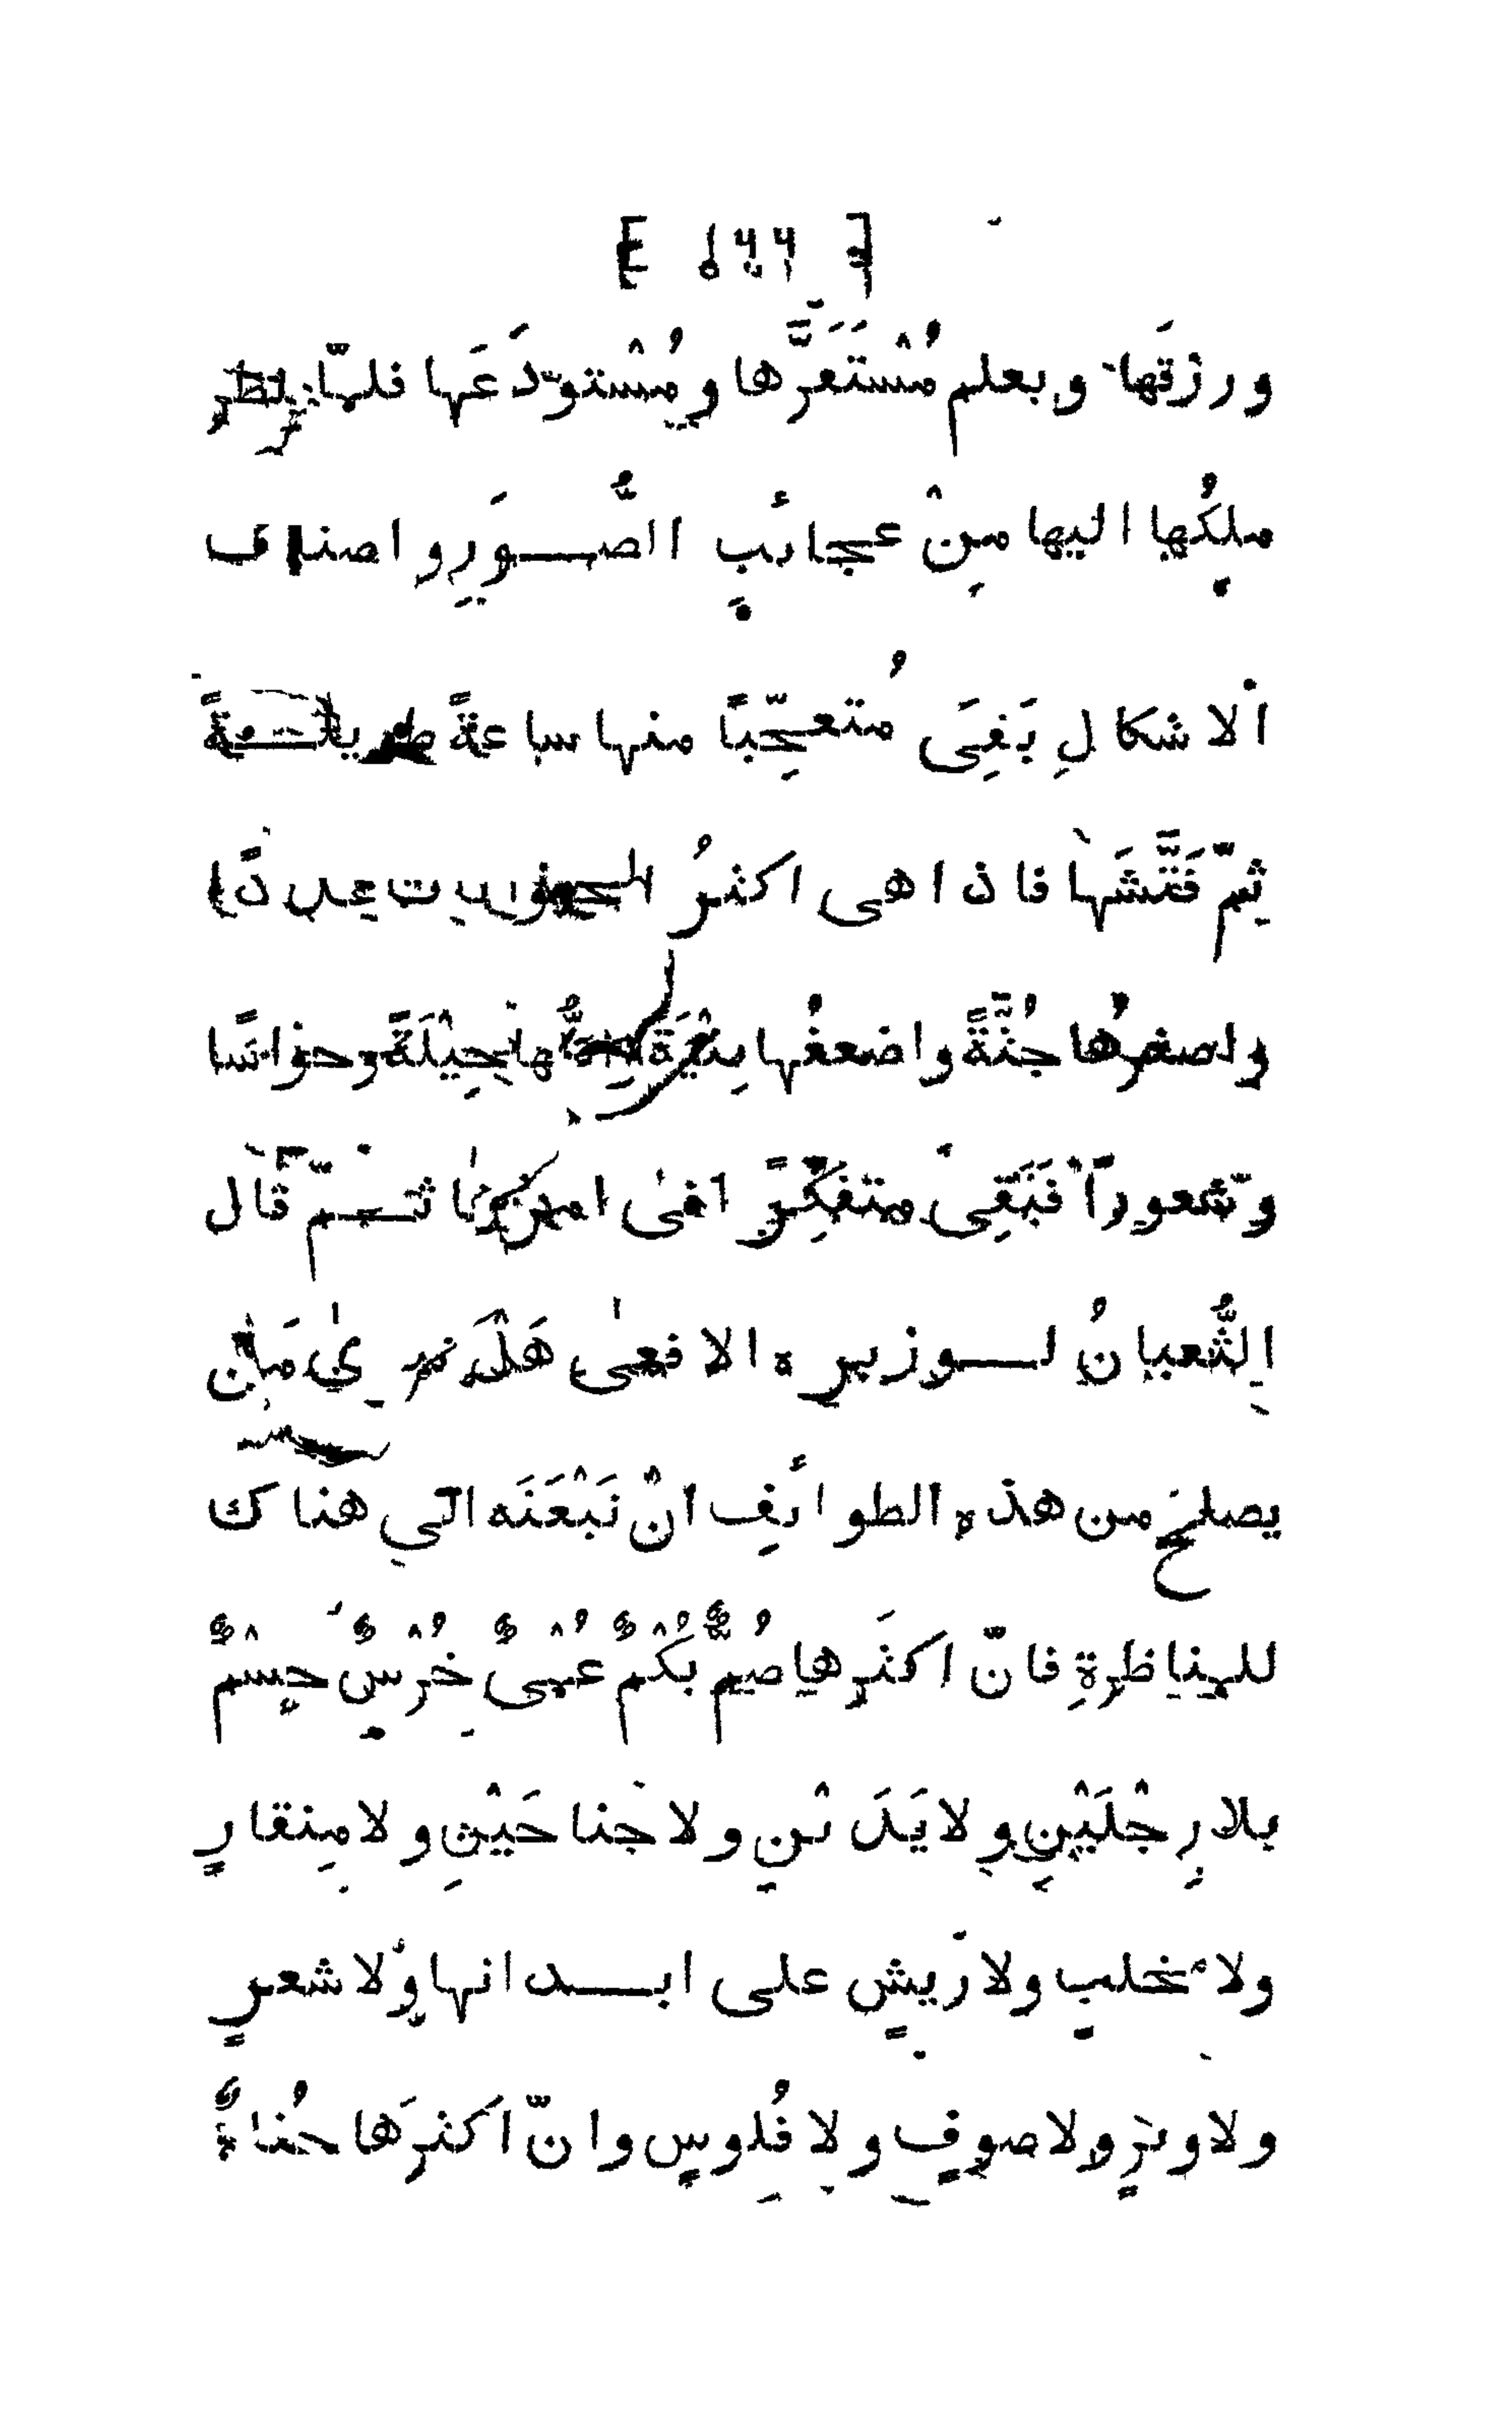 ورزقَها ويعلم مُسْتَقَرَّها ومُسْتودَعَها فلمّا نظر
ملِكُها اليها مِنْ عجائبِ الصُّوَرِ واصناف
الاشكالِ بَقِىَ مُتعجّبًا منها ساعةً طويلةً
ثمّ فَتَّشَها فاذا هى اكثرُ الحيوانات عددًا
واصغرُها جُثَّةً واضعفُها بِنْيَةً واقلُّها حِيْلَةً وحواسًا
وشعوراً فَبَقِىَ متفكّرًا فى امرها ثمّ قال
الثُّعبانُ لوزيره الافعىٰ هَلْ ترىٰ مَنْ
يصلح من هذه الطوائف انْ نَبْعَثَه الى هناك
للمناظرةِ فانّ اكثَرها صُمٌّ بُكْمٌ عُمْىٌ خُرْسٌ جِسْمٌ
بلا رِجْلَيْنِ ولا يَدَيْنِ ولا جناحَيْنِ ولا مِنقارٍ
ولا مخلبٍ ولا ريشٍ على ابدانها ولا شعرٍ
ولا وبرٍ ولا صوفٍ ولا فُلوسٍ وانّ اكثرَها حُفاةٌ